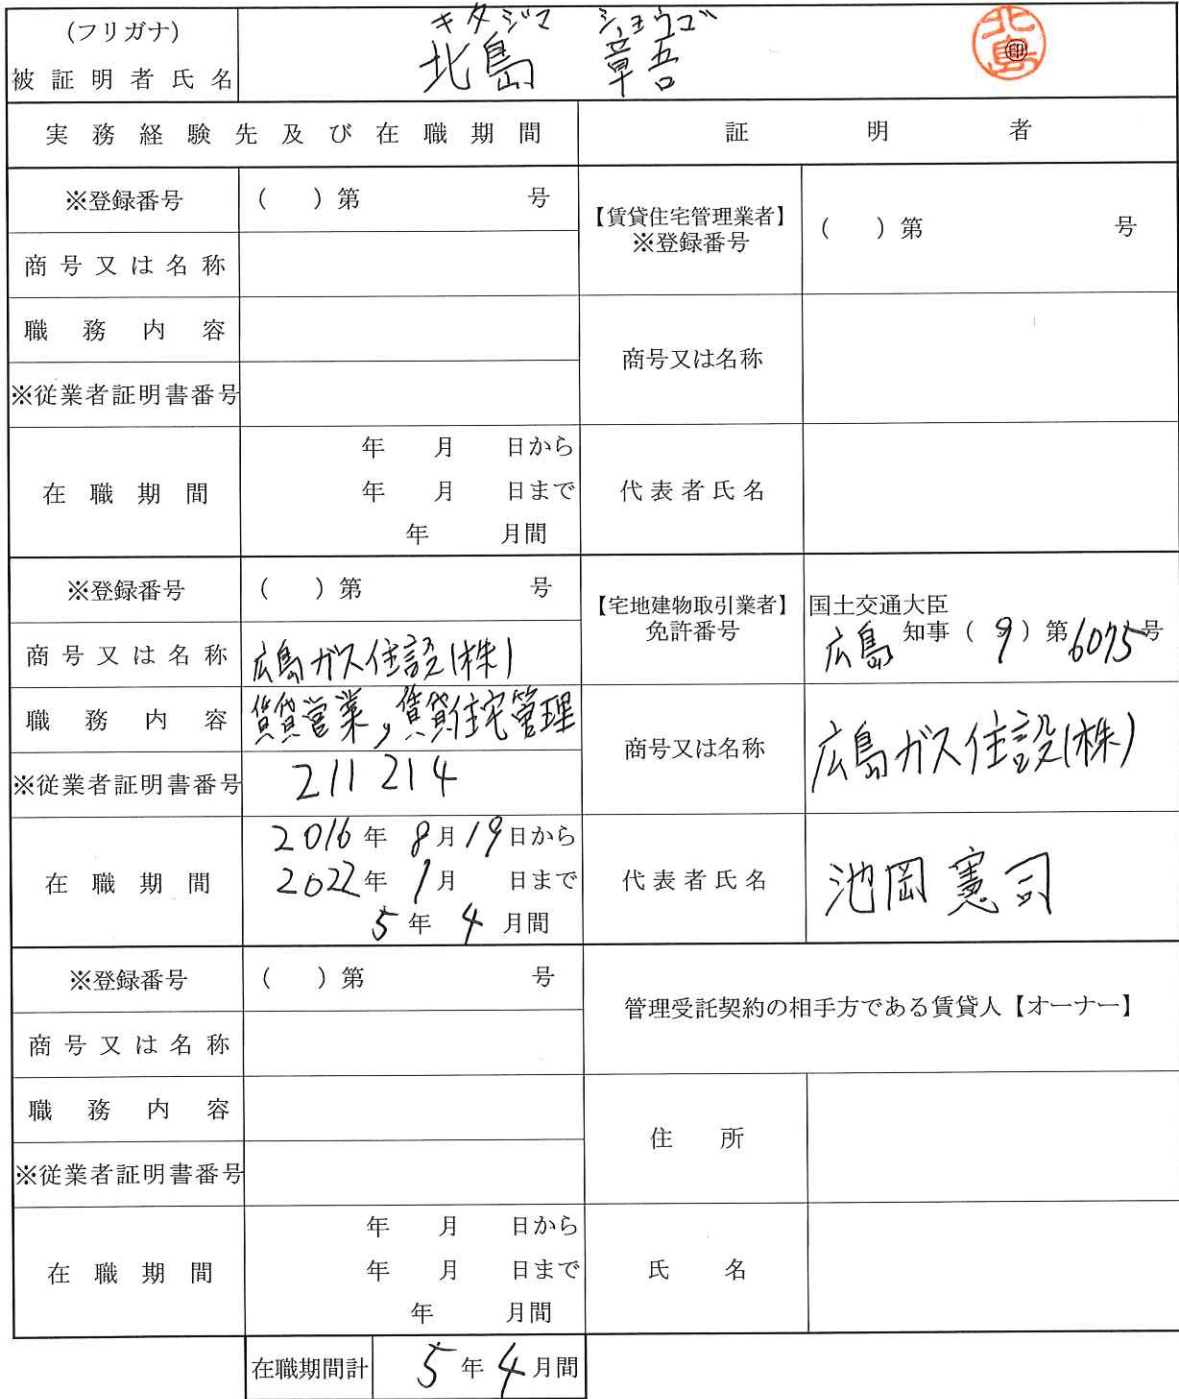 (フリガナ) キタジマ ショウゴ
被証明者氏名 北島 章吾 北島 ㊞
実務経験先及び在職期間 証明者
※登録番号 ( ) 第 号
【賃貸住宅管理業者】
※登録番号 ( ) 第 号
商号又は名称
職務内容
商号又は名称
※従業者証明書番号
在職期間
年 月 日から
年 月 日まで
年 月間
代表者氏名
※登録番号 ( ) 第 号
【宅地建物取引業者】
免許番号
国土交通大臣
広島 知事 ( 9 ) 第6075号
商号又は名称 広島ガス住設(株)
職務内容 賃貸営業,賃貸住宅管理
商号又は名称 広島ガス住設(株)
※従業者証明書番号 211214
在職期間
2016年 8月19日から
2022年 1月 日まで
5年 4月間
代表者氏名 池岡憲司
※登録番号 ( ) 第 号
管理受託契約の相手方である賃貸人【オーナー】
商号又は名称
職務内容
住所
※従業者証明書番号
在職期間
年 月 日から
年 月 日まで
年 月間
氏名
在職期間計 5年4月間